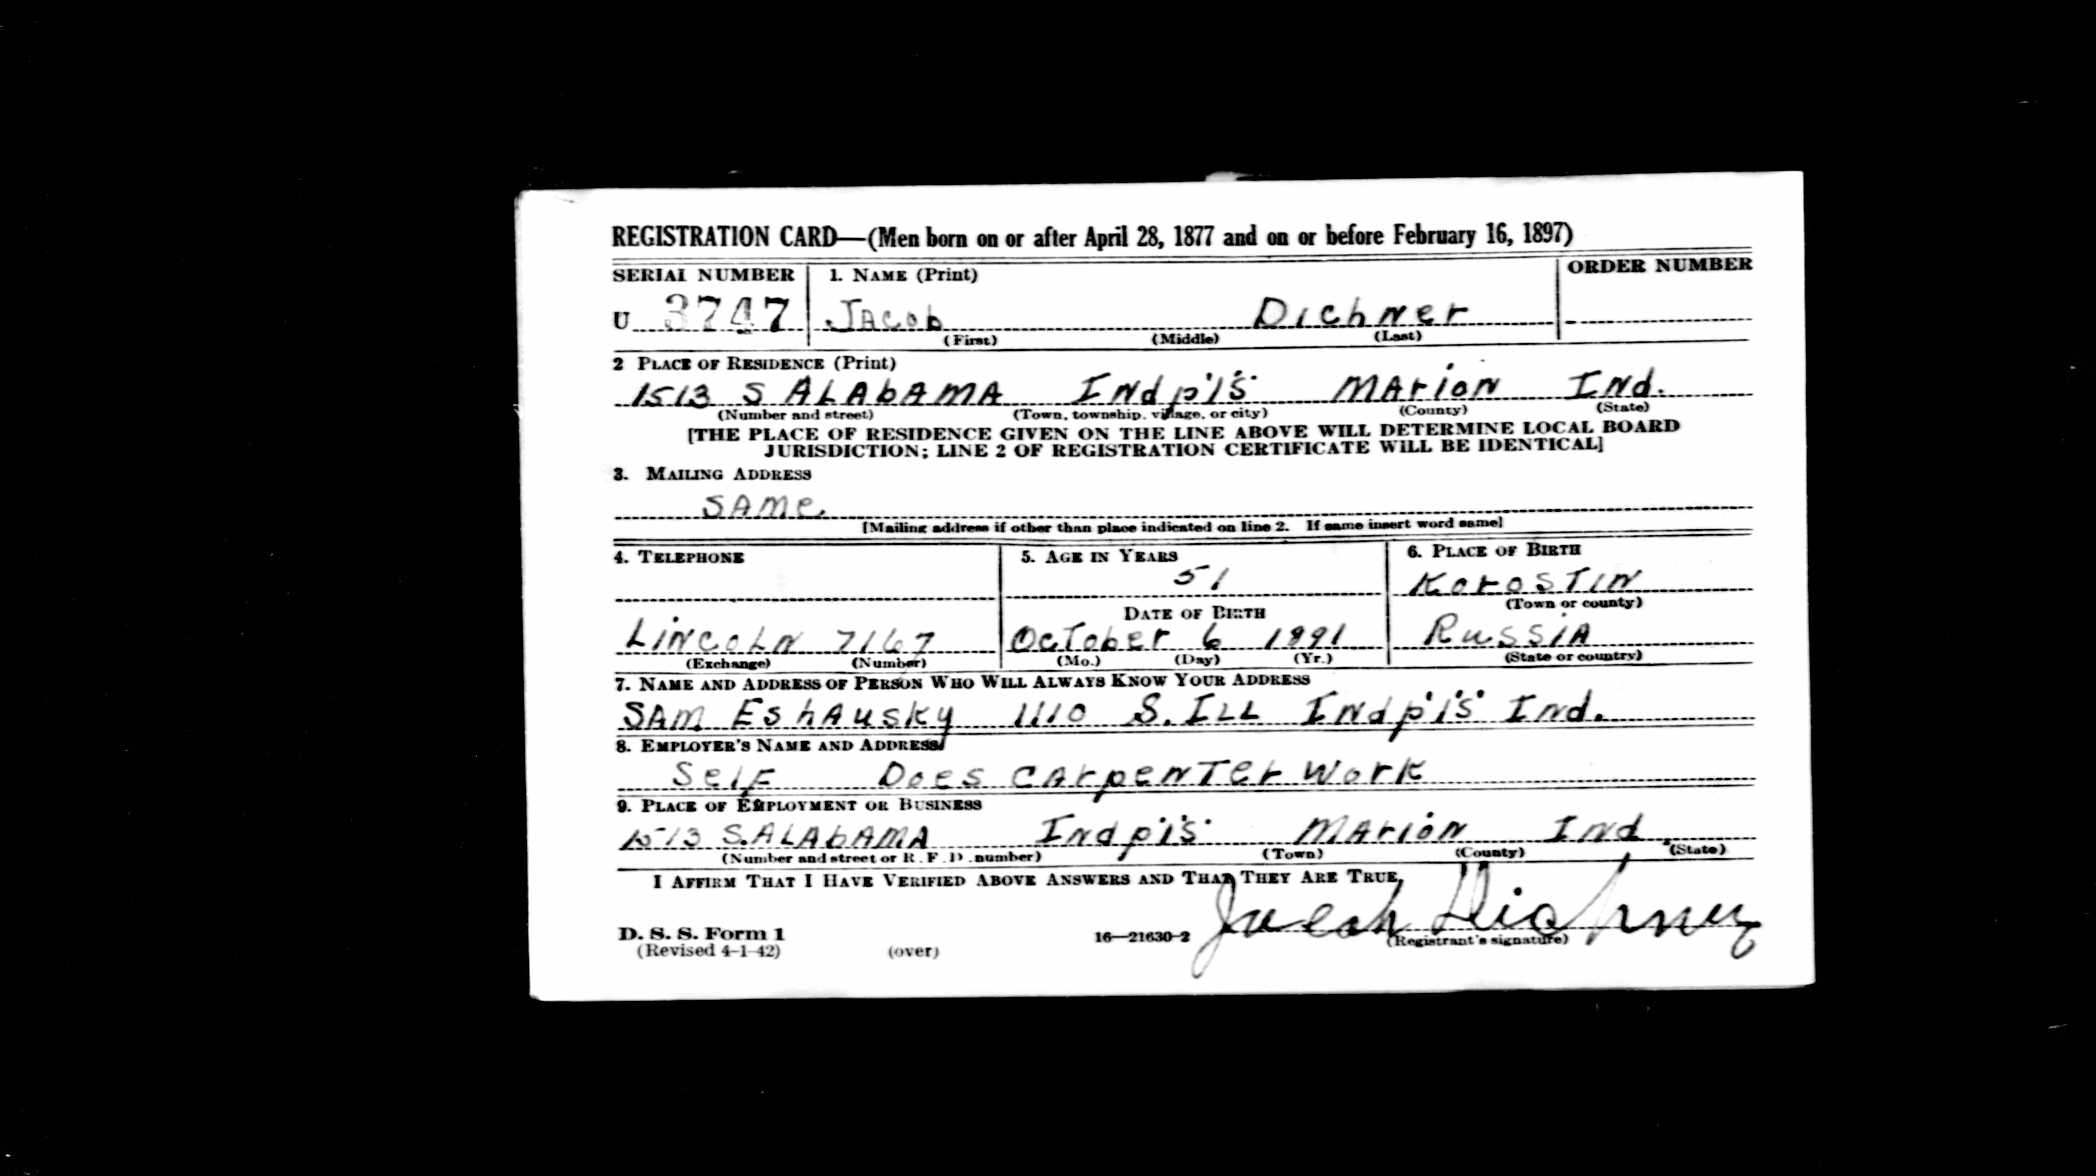 REGISTRATION CARD—(Men born on or after April 28, 1877 and on or before February 16, 1897)
SERIAL NUMBER 1. NAME (Print) ORDER NUMBER
U 3747 Jacob Dichner
(First) (Middle) (Last)
2 PLACE OF RESIDENCE (Print)
1513 S ALAbAMA Indp'l's MArion Ind.
(Number and street) (Town, township, village, or city) (County) (State)
[THE PLACE OF RESIDENCE GIVEN ON THE LINE ABOVE WILL DETERMINE LOCAL BOARD
JURISDICTION; LINE 2 OF REGISTRATION CERTIFICATE WILL BE IDENTICAL]
3. MAILING ADDRESS
SAMe
[Mailing address if other than place indicated on line 2. If same insert word same]
4. TELEPHONE 5. AGE IN YEARS 6. PLACE OF BIRTH
51 KorosTin
(Town or county)
DATE OF BIRTH
LincoLn 7167 OcTober 6 1891 RussiA
(Exchange) (Number) (Mo.) (Day) (Yr.) (State or country)
7. NAME AND ADDRESS OF PERSON WHO WILL ALWAYS KNOW YOUR ADDRESS
SAm EshAusky 1110 S. ILL Indp'l's' Ind.
8. EMPLOYER'S NAME AND ADDRESS
Self Does CArpenTer Work
9. PLACE OF EMPLOYMENT OR BUSINESS
1513 S. ALAbAMA Indp'l's' MArion Ind
(Number and street or R. F. D. number) (Town) (County) (State)
I AFFIRM THAT I HAVE VERIFIED ABOVE ANSWERS AND THAT THEY ARE TRUE.
Jacob Dichner
D. S. S. Form 1 16—21630-2 (Registrant's signature)
(Revised 4-1-42) (over)